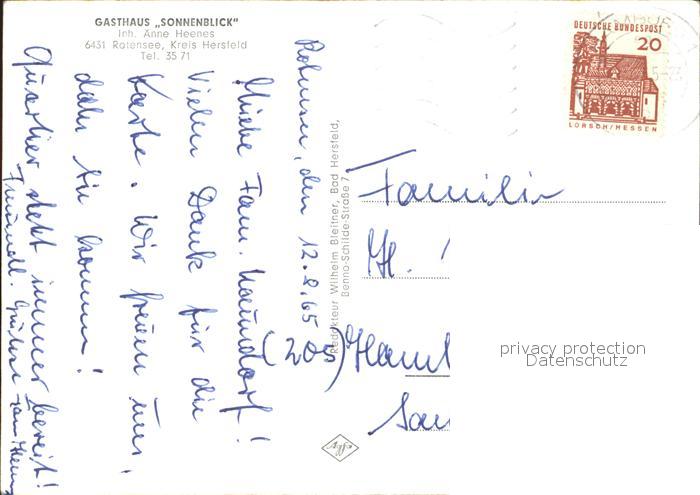 GASTHAUS „SONNENBLICK"
Inh. Anne Heenes
6431 Rotensee, Kreis Hersfeld
Tel. 35 71
den 12.8.65
Fam. Naundorf!
Vielen Dank für die
Karte. Wir freuen uns,
daß Sie kommen!
Quartier steht immer bereit!
Freundl. Grüße
Redakteur Wilhelm Bleitner, Bad Hersfeld,
Benno-Schilde-Straße 7
DEUTSCHE BUNDESPOST
20
LORSCH/HESSEN
Familie
H.
(205) Hamb
San
Agfa
privacy protection
Datenschutz